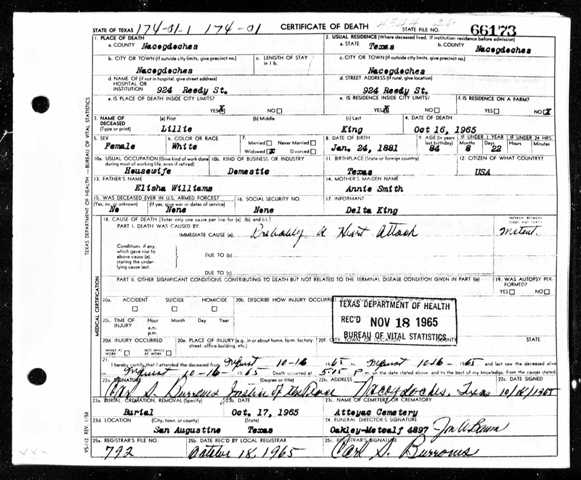 STATE OF TEXAS 174-01-1 174-01 CERTIFICATE OF DEATH STATE FILE NO. 66173
1. PLACE OF DEATH 2. USUAL RESIDENCE (Where deceased lived. If institution: residence before admission)
a. COUNTY Nacogdoches a. STATE Texas b. COUNTY Nacogdoches
b. CITY OR TOWN (If outside city limits, give precinct no.) c. LENGTH OF STAY in 1 b. c. CITY OR TOWN (If outside city limits, give precinct no.)
Nacogdoches Nacogdoches
d. NAME OF (If not in hospital, give street address) HOSPITAL OR INSTITUTION 924 Reedy St. d. STREET ADDRESS (If rural, give location) 924 Reedy St.
e. IS PLACE OF DEATH INSIDE CITY LIMITS? e. IS RESIDENCE INSIDE CITY LIMITS? f. IS RESIDENCE ON A FARM?
YES NO YES NO YES NO
3. NAME OF DECEASED (Type or print) (a) First (b) Middle (c) Last 4. DATE OF DEATH
Lillie King Oct 16, 1965
5. SEX 6. COLOR OR RACE 7. Married Never Married 8. DATE OF BIRTH 9. AGE IF UNDER 1 YEAR IF UNDER 24 HRS.
Female White Widowed Divorced Jan. 24, 1881 84 8 22
10a. USUAL OCCUPATION (Give kind of work done during most of working life, even if retired) 10b. KIND OF BUSINESS OR INDUSTRY 11. BIRTHPLACE (State or foreign country) 12. CITIZEN OF WHAT COUNTRY?
Housewife Domestic Texas USA
13. FATHER'S NAME 14. MOTHER'S MAIDEN NAME
Elisha Williams Annie Smith
15. WAS DECEASED EVER IN U.S. ARMED FORCES? 16. SOCIAL SECURITY NO. 17. INFORMANT
(Yes, no, or unknown) (If yes, give war or dates of service)
No None None Delta King
18. CAUSE OF DEATH [Enter only one cause per line for (a), (b), and (c).]
PART I. DEATH WAS CAUSED BY:
IMMEDIATE CAUSE (a) Probably A Heart Attack
Conditions, if any, which gave rise to above cause (a) stating the underlying cause last. DUE TO (b)
DUE TO (c)
PART II. OTHER SIGNIFICANT CONDITIONS CONTRIBUTING TO DEATH BUT NOT RELATED TO THE TERMINAL DISEASE CONDITION GIVEN IN PART I(a) 19. WAS AUTOPSY PERFORMED?
YES NO
20a. ACCIDENT SUICIDE HOMICIDE 20b. DESCRIBE HOW INJURY OCCURRED
20c. TIME OF INJURY Hour Month Day Year
a.m.
p.m.
20d. INJURY OCCURRED 20e. PLACE OF INJURY (e.g. in or about home, farm, factory, street, office building, etc.) 20f. CITY COUNTY STATE
TEXAS DEPARTMENT OF HEALTH
REC'D NOV 18 1965
BUREAU OF VITAL STATISTICS
21. I hereby certify that I attended the deceased from 10-16 65 10-16 65 and last saw the deceased alive
10-16 65 Death occurred at 5:15 P m. on the date stated above; and to the best of my knowledge, from the causes stated.
22a. SIGNATURE (Degree or title) 22b. ADDRESS 22c. DATE SIGNED
Carl S. Burrows Justice of the Peace Nacogdoches, Texas 10/18/1965
23a. BURIAL, CREMATION, REMOVAL (Specify) 23b. DATE 23c. NAME OF CEMETERY OR CREMATORY
Burial Oct. 17, 1965 Attoyac Cemetery
23d. LOCATION (City, town, or county) (State) 24. FUNERAL DIRECTOR'S SIGNATURE
San Augustine Texas Oakley-Metcalf 4897
25a. REGISTRAR'S FILE NO. 25b. DATE REC'D BY LOCAL REGISTRAR 25c. REGISTRAR'S SIGNATURE
792 October 18, 1965 Carl S. Burrows
TEXAS DEPARTMENT OF HEALTH — BUREAU OF VITAL STATISTICS
MEDICAL CERTIFICATION